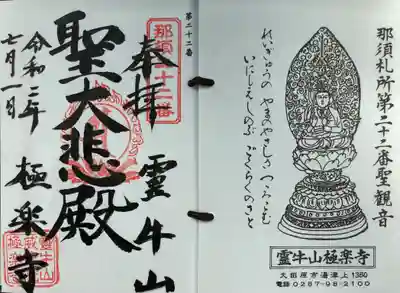 那須札所第二十二番聖観音
れいぎゅうの やまのやさしさ
いにしえしのぶ ごくらくのさと
靈牛山極楽寺
大田原市湯津上1380
電話0287-98-2100
第二十二番
那須二十二番
奉拝 靈牛山
聖大悲殿
極楽寺
令和二年
七月一日